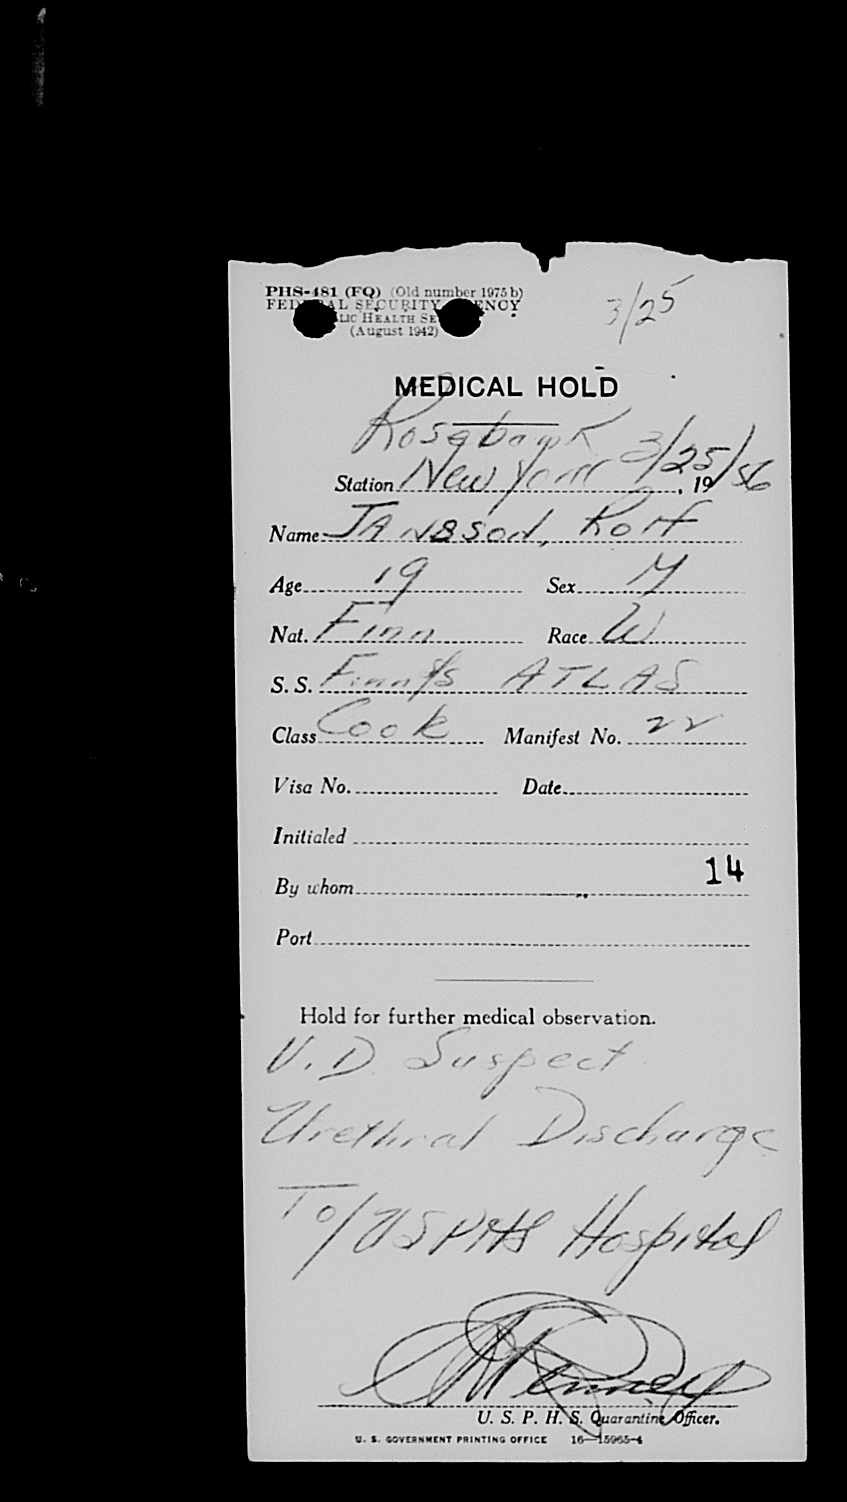 PHS-481 (FQ) (Old number 1975 b)
FEDERAL SECURITY AGENCY
PUBLIC HEALTH SE
(August 1942)
3/25
MEDICAL HOLD
Rosebank
Station New York 3/25, 19/56
Name Jansson, Rolf
Age 19 Sex M
Nat. Finn Race W
S. S. Finn M/S ATLAS
Class Cook Manifest No. 22
Visa No. Date
Initialed
14
By whom
Port
Hold for further medical observation.
V.D Suspect
Urethral Discharge
To/USPHS Hospital
U. S. P. H. S. Quarantine Officer.
U. S. GOVERNMENT PRINTING OFFICE 16—15965-4